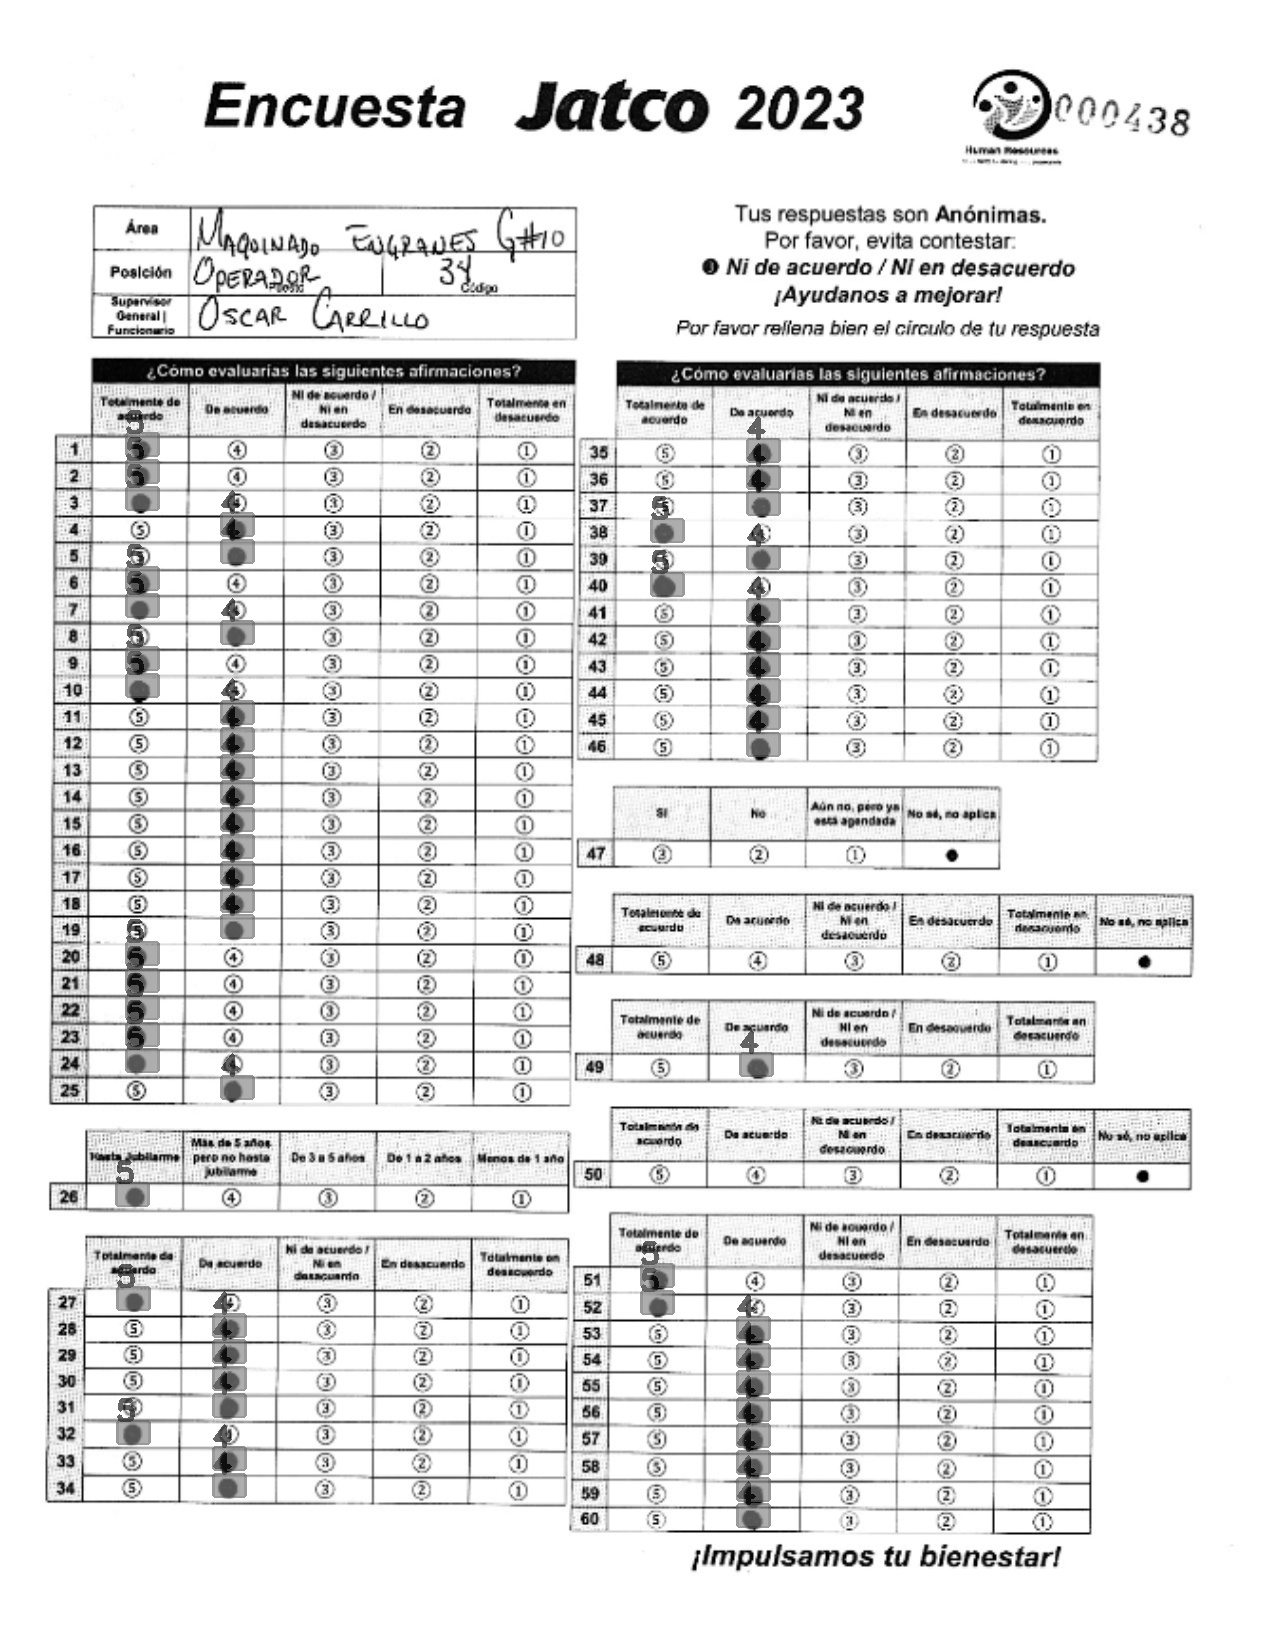 Encuesta Jatco 2023
Human Resources
000438
Área MAQUINADO ENGRANES G#10
Posición OPERADOR Puesto 34 Código
Supervisor General | Funcionario OSCAR CARRILLO
Tus respuestas son Anónimas.
Por favor, evita contestar:
❸ Ni de acuerdo / Ni en desacuerdo
¡Ayudanos a mejorar!
Por favor rellena bien el círculo de tu respuesta
¿Cómo evaluarías las siguientes afirmaciones?
Totalmente de acuerdo De acuerdo Ni de acuerdo / Ni en desacuerdo En desacuerdo Totalmente en desacuerdo
5
1 5 ④ ③ ② ①
2 5 ④ ③ ② ①
3 4 ③ ② ①
4 ⑤ 4 ③ ② ①
5 5 ③ ② ①
6 5 ④ ③ ② ①
7 4 ③ ② ①
8 5 ③ ② ①
9 5 ④ ③ ② ①
10 4 ③ ② ①
11 ⑤ 4 ③ ② ①
12 ⑤ 4 ③ ② ①
13 ⑤ 4 ③ ② ①
14 ⑤ 4 ③ ② ①
15 ⑤ 4 ③ ② ①
16 ⑤ 4 ③ ② ①
17 ⑤ 4 ③ ② ①
18 ⑤ 4 ③ ② ①
19 5 ③ ② ①
20 5 ④ ③ ② ①
21 5 ④ ③ ② ①
22 5 ④ ③ ② ①
23 5 ④ ③ ② ①
24 4 ③ ② ①
25 ⑤ ③ ② ①
Hasta Jubilarme Más de 5 años pero no hasta jubilarme De 3 a 5 años De 1 a 2 años Menos de 1 año
5
26 ④ ③ ② ①
Totalmente de acuerdo De acuerdo Ni de acuerdo / Ni en desacuerdo En desacuerdo Totalmente en desacuerdo
5
27 4 ③ ② ①
28 ⑤ 4 ③ ② ①
29 ⑤ 4 ③ ② ①
30 ⑤ 4 ③ ② ①
31 5 ③ ② ①
32 4 ③ ② ①
33 ⑤ 4 ③ ② ①
34 ⑤ ③ ② ①
¿Cómo evaluarías las siguientes afirmaciones?
Totalmente de acuerdo De acuerdo Ni de acuerdo / Ni en desacuerdo En desacuerdo Totalmente en desacuerdo
4
35 ⑤ 4 ③ ② ①
36 ⑤ 4 ③ ② ①
37 5 ③ ② ①
38 4 ③ ② ①
39 5 ③ ② ①
40 4 ③ ② ①
41 ⑤ 4 ③ ② ①
42 ⑤ 4 ③ ② ①
43 ⑤ 4 ③ ② ①
44 ⑤ 4 ③ ② ①
45 ⑤ 4 ③ ② ①
46 ⑤ ③ ② ①
Si No Aún no, pero ya está agendada No sé, no aplica
47 ③ ② ①
Totalmente de acuerdo De acuerdo Ni de acuerdo / Ni en desacuerdo En desacuerdo Totalmente en desacuerdo No sé, no aplica
48 ⑤ ④ ③ ② ①
Totalmente de acuerdo De acuerdo Ni de acuerdo / Ni en desacuerdo En desacuerdo Totalmente en desacuerdo
4
49 ⑤ ③ ② ①
Totalmente de acuerdo De acuerdo Ni de acuerdo / Ni en desacuerdo En desacuerdo Totalmente en desacuerdo No sé, no aplica
50 ⑤ ④ ③ ② ①
Totalmente de acuerdo De acuerdo Ni de acuerdo / Ni en desacuerdo En desacuerdo Totalmente en desacuerdo
5
51 5 ④ ③ ② ①
52 4 ③ ② ①
53 ⑤ 4 ③ ② ①
54 ⑤ 4 ③ ② ①
55 ⑤ 4 ③ ② ①
56 ⑤ 4 ③ ② ①
57 ⑤ 4 ③ ② ①
58 ⑤ 4 ③ ② ①
59 ⑤ 4 ③ ② ①
60 ⑤ ③ ② ①
¡Impulsamos tu bienestar!